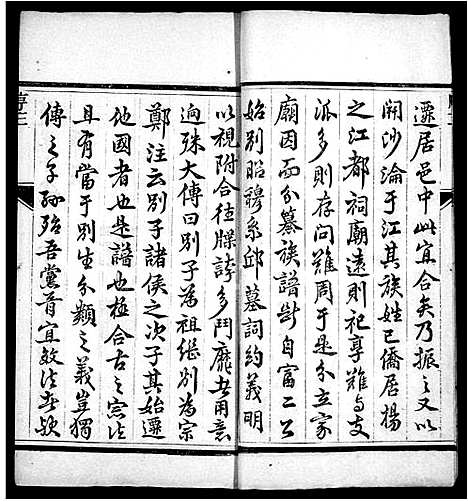 遷居邑中此宜合矣乃振之又以
開沙淪于江其族姓已僑居揚
之江都祠廟遠則祀享難与支
派多則存问難周于是分立家
廟因而分纂族譜断自富二公
始别昭穆系邱墓詞約義明
以視附合往牒誇多鬥靡者用意
逈殊大傳曰别子為祖继别為宗
鄭注云别子諸侯之次子其始遷
他國者也是譜也極合古之宗法
且有當于别生分類之義豈獨
傳之子孫殆吾黨首宜效法者欤
序二